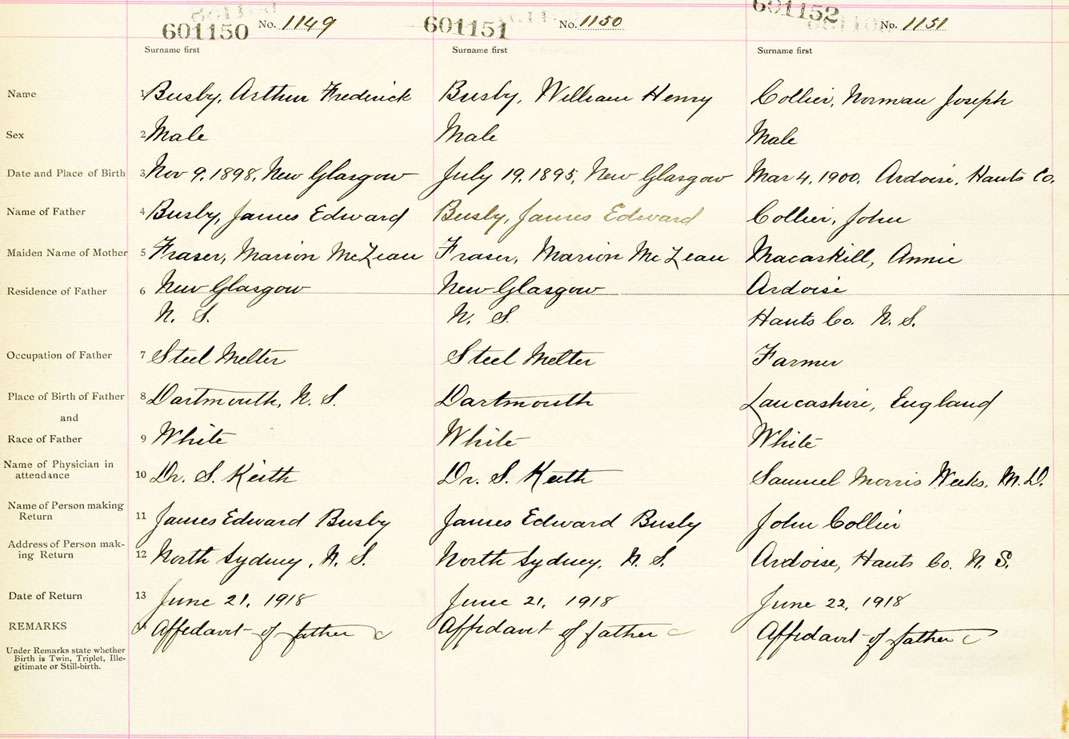 601150 No. 1149 601151 No. 1150 601152 No. 1151
Surname first Surname first Surname first
Name 1 Busby, Arthur Fredrick Busby, William Henry Collier, Norman Joseph
Sex 2 Male Male Male
Date and Place of Birth 3 Nov 9, 1898, New Glasgow July 19, 1895, New Glasgow Mar 4, 1900, Ardoise, Hants Co.
Name of Father 4 Busby, James Edward Busby, James Edward Collier, John
Maiden Name of Mother 5 Fraser, Marion McLean Fraser, Marion McLean Macaskill, Annie
Residence of Father 6 New Glasgow New Glasgow Ardoise
N. S. N. S. Hants Co. N. S.
Occupation of Father 7 Steel Melter Steel Melter Farmer
Place of Birth of Father 8 Dartmouth, N. S. Dartmouth Lancashire, England
and
Race of Father 9 White White White
Name of Physician in
attendance 10 Dr. S. Keith Dr. S. Keith Samuel Morris Weeks, M.D.
Name of Person making
Return 11 James Edward Busby James Edward Busby John Collier
Address of Person mak-
ing Return 12 North Sydney, N. S. North Sydney, N. S. Ardoise, Hants Co. N. S.
Date of Return 13 June 21, 1918 June 21, 1918 June 22, 1918
REMARKS Affidavit of father Affidavit of father Affidavit of father
Under Remarks state whether
Birth is Twin, Triplet, Ille-
gitimate or Still-birth.